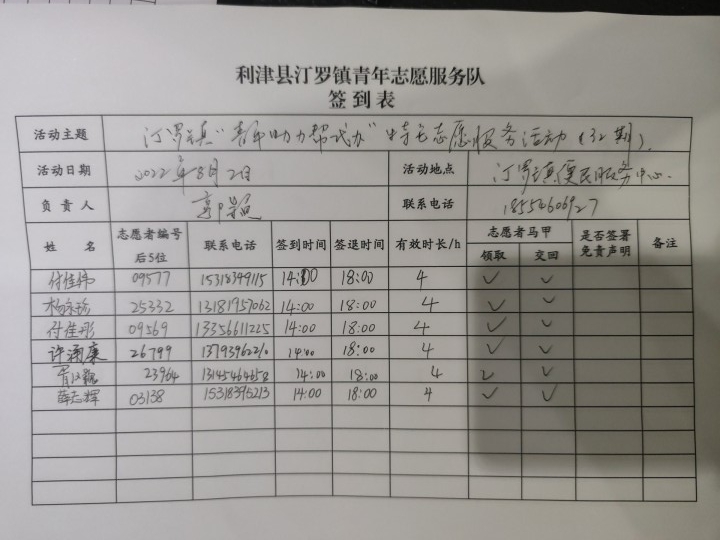 利津县汀罗镇青年志愿服务队
签到表
活动主题 汀罗镇“青年助力帮代办”特色志愿服务活动（32期）.
活动日期 2022年8月2日 活动地点 汀罗镇便民服务中心.
负责人 联系电话 18554606927
姓名 志愿者编号后5位 联系电话 签到时间 签退时间 有效时长/h 志愿者马甲 领取 交回 是否签署免责声明 备注
付佳伟 09577 15318349115 14:00 18:00 4 ✓ ✓
杨永珍 25332 13181957062 14:00 18:00 4 ✓ ✓
付佳彤 09569 13356611225 14:00 18:00 4 ✓ ✓
许涌康 26799 14:00 18:00 4 ✓ ✓
23964 13145464658 14:00 18:00 4 ✓ ✓
薛志辉 03138 15318395213 14:00 18:00 4 ✓ ✓